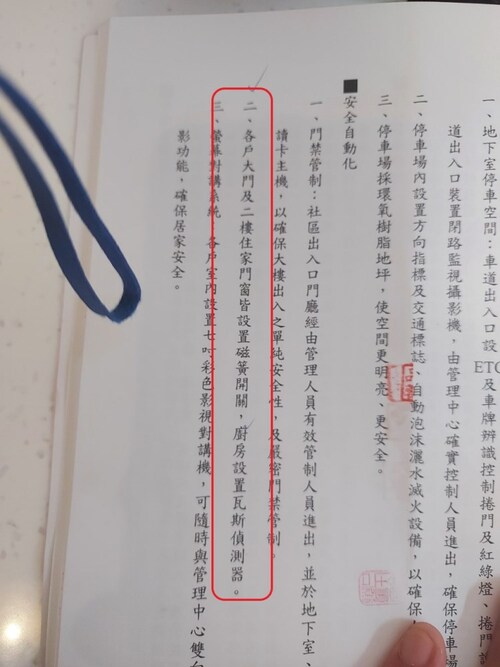 一、地下室停車空間：車道出入口設ETC及車牌辨識控制捲門及紅綠燈、捲門
道出入口裝置閉路監視攝影機，由管理中心確實控制人員進出，確保停車場
二、停車場內設置方向指標及交通標誌、自動泡沫灑水滅火設備，以確保
三、停車場採環氧樹脂地坪，使空間更明亮、更安全。
■安全自動化
一、門禁管制：社區出入口門廳經由管理人員有效管制人員進出，並於地下室、
讀卡主機，以確保大樓出入之單純安全性，及嚴密門禁管制。
二、各戶大門及二樓住家門窗皆設置磁簧開關，廚房設置瓦斯偵測器。
三、螢幕對講系統：各戶室內設置七吋彩色影視對講機，可隨時與管理中心雙向
影功能，確保居家安全。